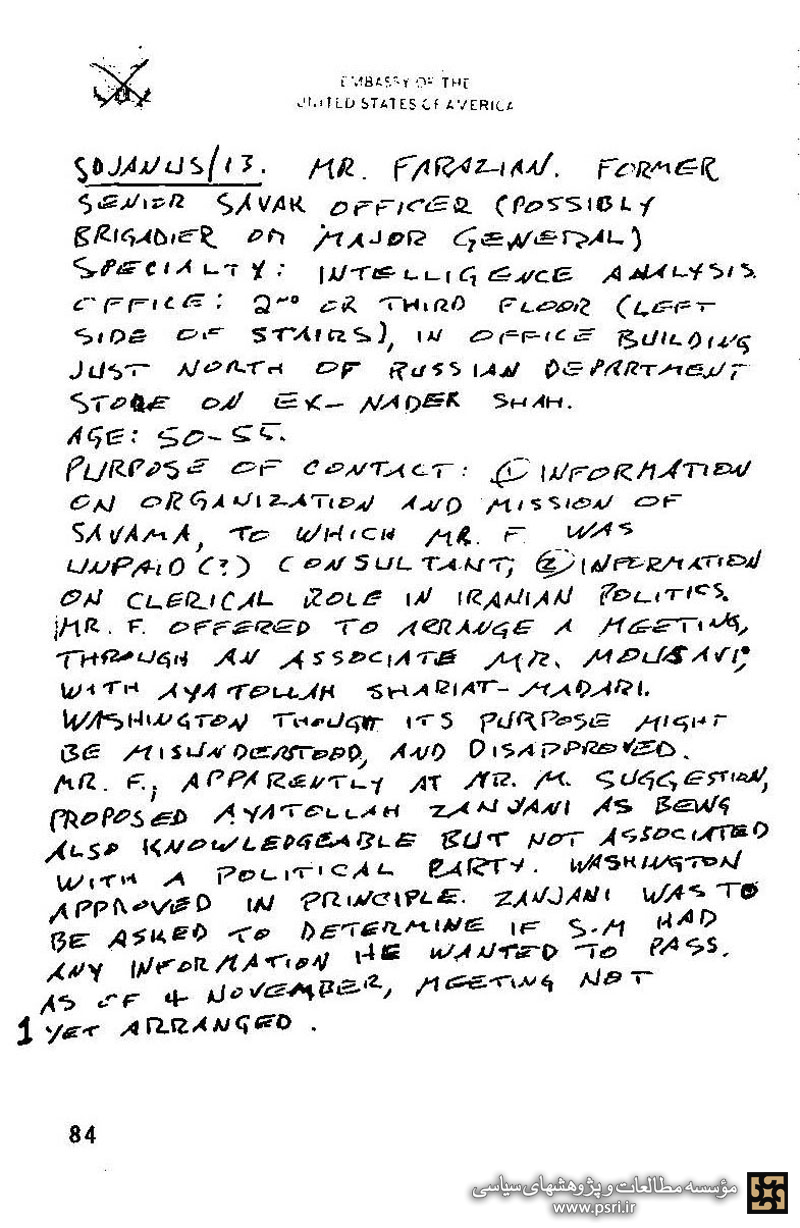 EMBASSY OF THE
UNITED STATES OF AMERICA
SDJANUS/13. MR. FARAZIAN. FORMER
SENIOR SAVAK OFFICER (POSSIBLY
BRIGADIER OR MAJOR GENERAL)
SPECIALTY: INTELLIGENCE ANALYSIS.
OFFICE: 2ND OR THIRD FLOOR (LEFT
SIDE OF STAIRS), IN OFFICE BUILDING
JUST NORTH OF RUSSIAN DEPARTMENT
STORE ON EX-NADER SHAH.
AGE: 50-55.
PURPOSE OF CONTACT: ① INFORMATION
ON ORGANIZATION AND MISSION OF
SAVAMA, TO WHICH MR. F. WAS
UNPAID(?) CONSULTANT; ② INFORMATION
ON CLERICAL ROLE IN IRANIAN POLITICS.
MR. F. OFFERED TO ARRANGE A MEETING,
THROUGH AN ASSOCIATE MR. MOUSAVI,
WITH AYATOLLAH SHARIAT-MADARI.
WASHINGTON THOUGHT ITS PURPOSE MIGHT
BE MISUNDERSTOOD, AND DISAPPROVED.
MR. F., APPARENTLY AT MR. M. SUGGESTION,
PROPOSED AYATOLLAH ZANJANI AS BEING
ALSO KNOWLEDGEABLE BUT NOT ASSOCIATED
WITH A POLITICAL PARTY. WASHINGTON
APPROVED IN PRINCIPLE. ZANJANI WAS TO
BE ASKED TO DETERMINE IF S-M HAD
ANY INFORMATION HE WANTED TO PASS.
AS OF 4 NOVEMBER, MEETING NOT
1 YET ARRANGED.
84
مؤسسه مطالعات و پژوهشهای سیاسی
www.psri.ir